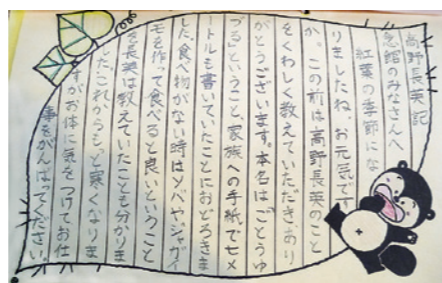 高野長英記
念館のみなさんへ
紅葉の季節にな
りましたね。お元気です
か。この前は高野長英のこと
をくわしく教えていただき、あり
がとうございます。本名はごとうゆ
づる」ということ、家族への手紙でセメ
トルも書いていたことにおどろきま
した。食べ物がない時はソバやジャガイ
モを作って食べると良いということ
を長英は教えていたことも分かりま
した。これからもっと寒くなりま
すがお体に気をつけてお仕
事をがんばってください。